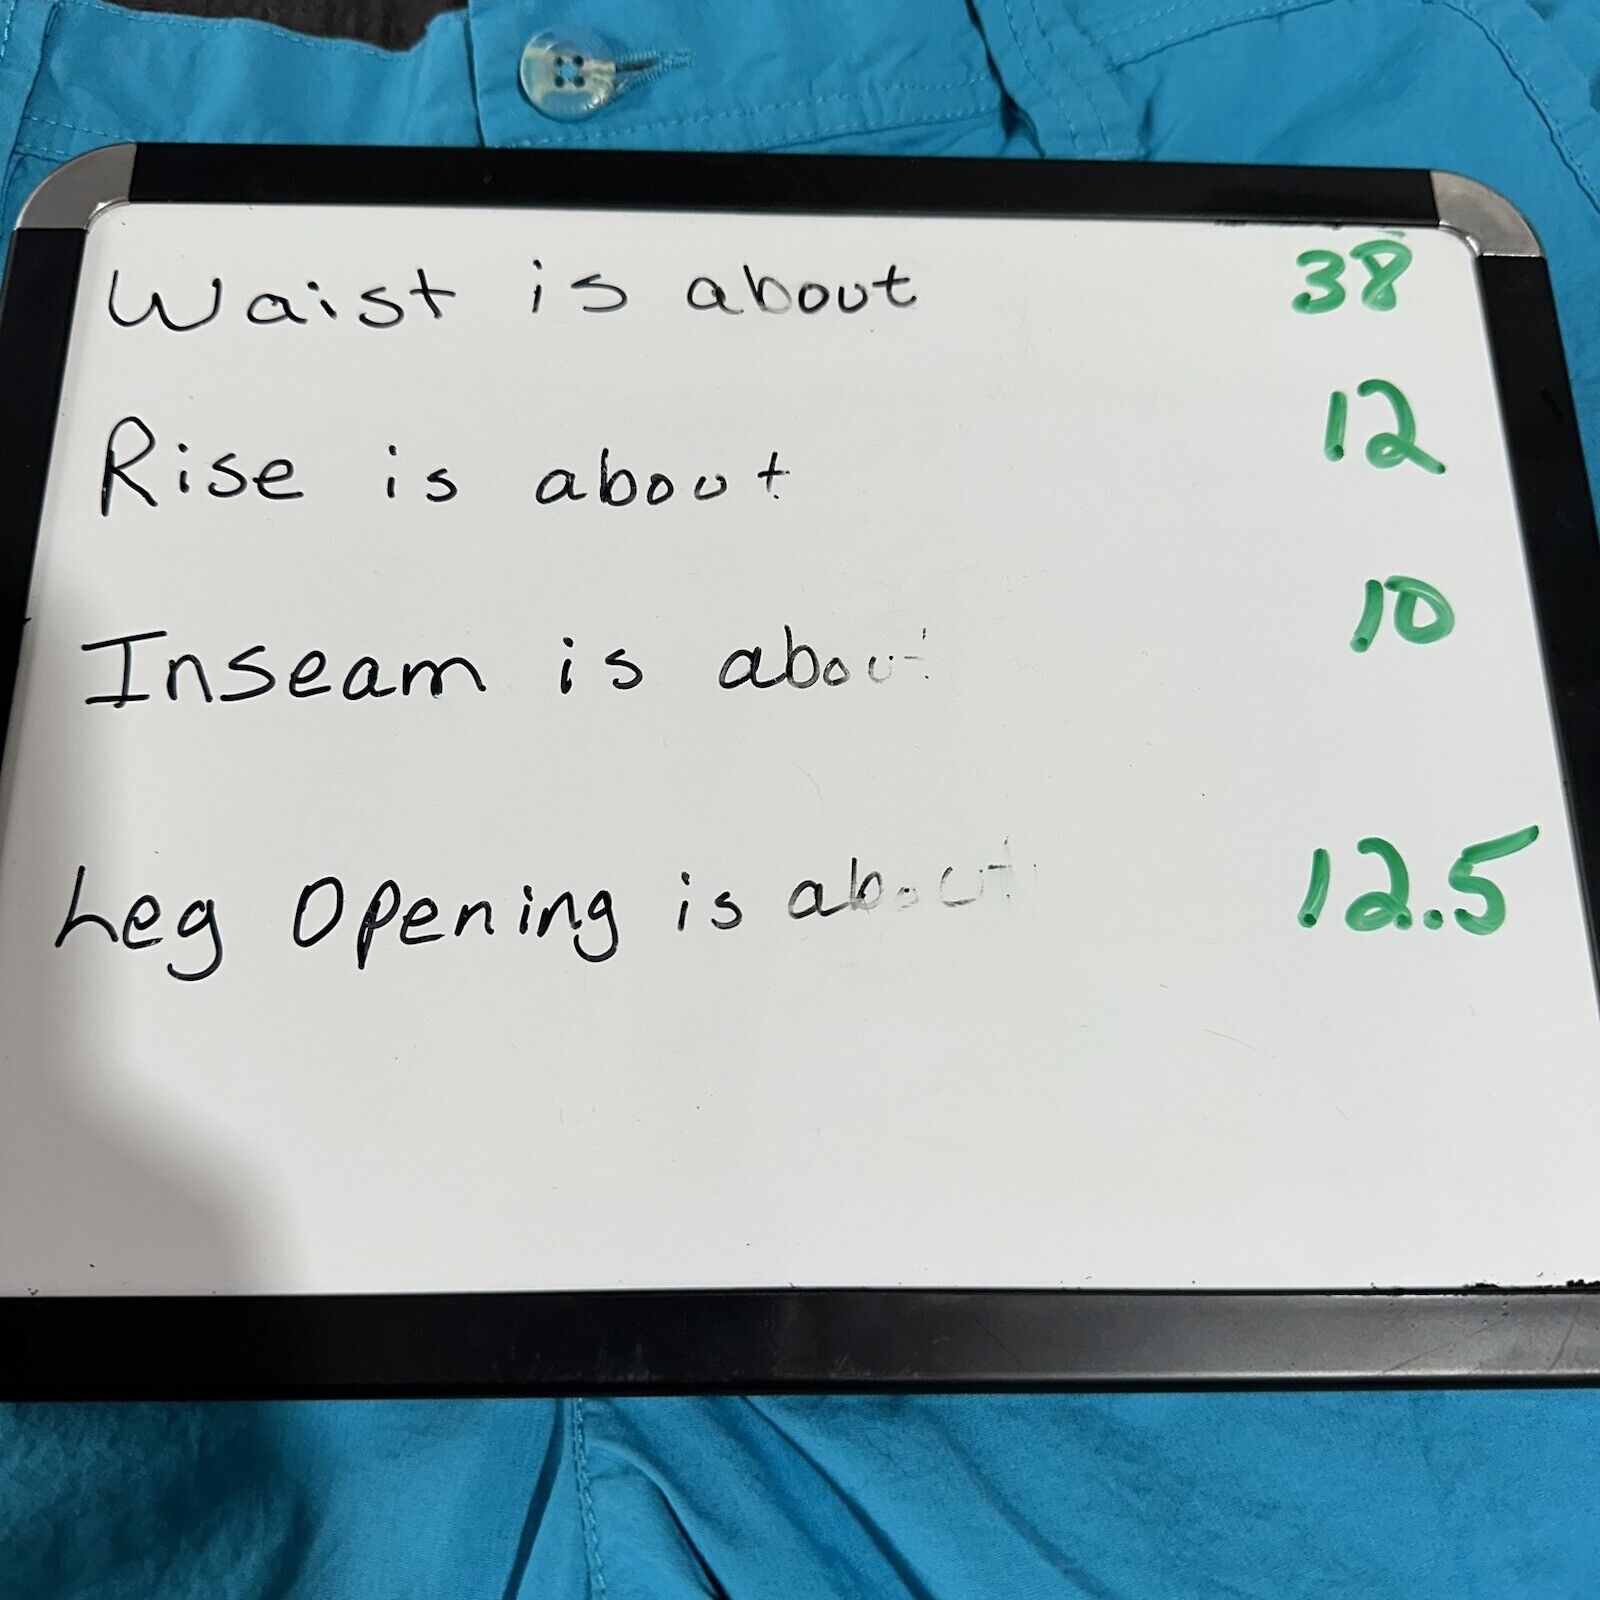 Waist is about 38
Rise is about 12
Inseam is about 10
Leg Opening is about 12.5